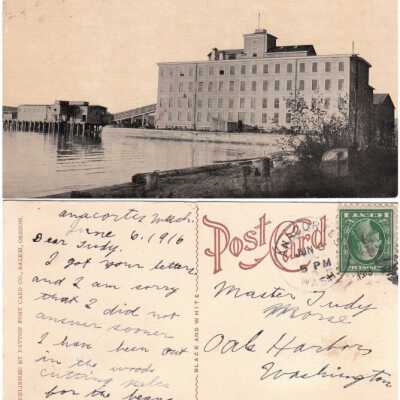 anacortes Wash.
June 6. 1916
Dear Judy.
I got your letters
and I am sorry
that I did not
answer sooner
I have been out
in the woods
cutting poles
for the beans
PUBLISHED BY PATTON POST CARD CO., SALEM, OREGON.
BLACK AND WHITE
Post Card
ANACORTES
JUN
5 PM
WASH.
Master Judy
Morse
Oak Harbor
Washington